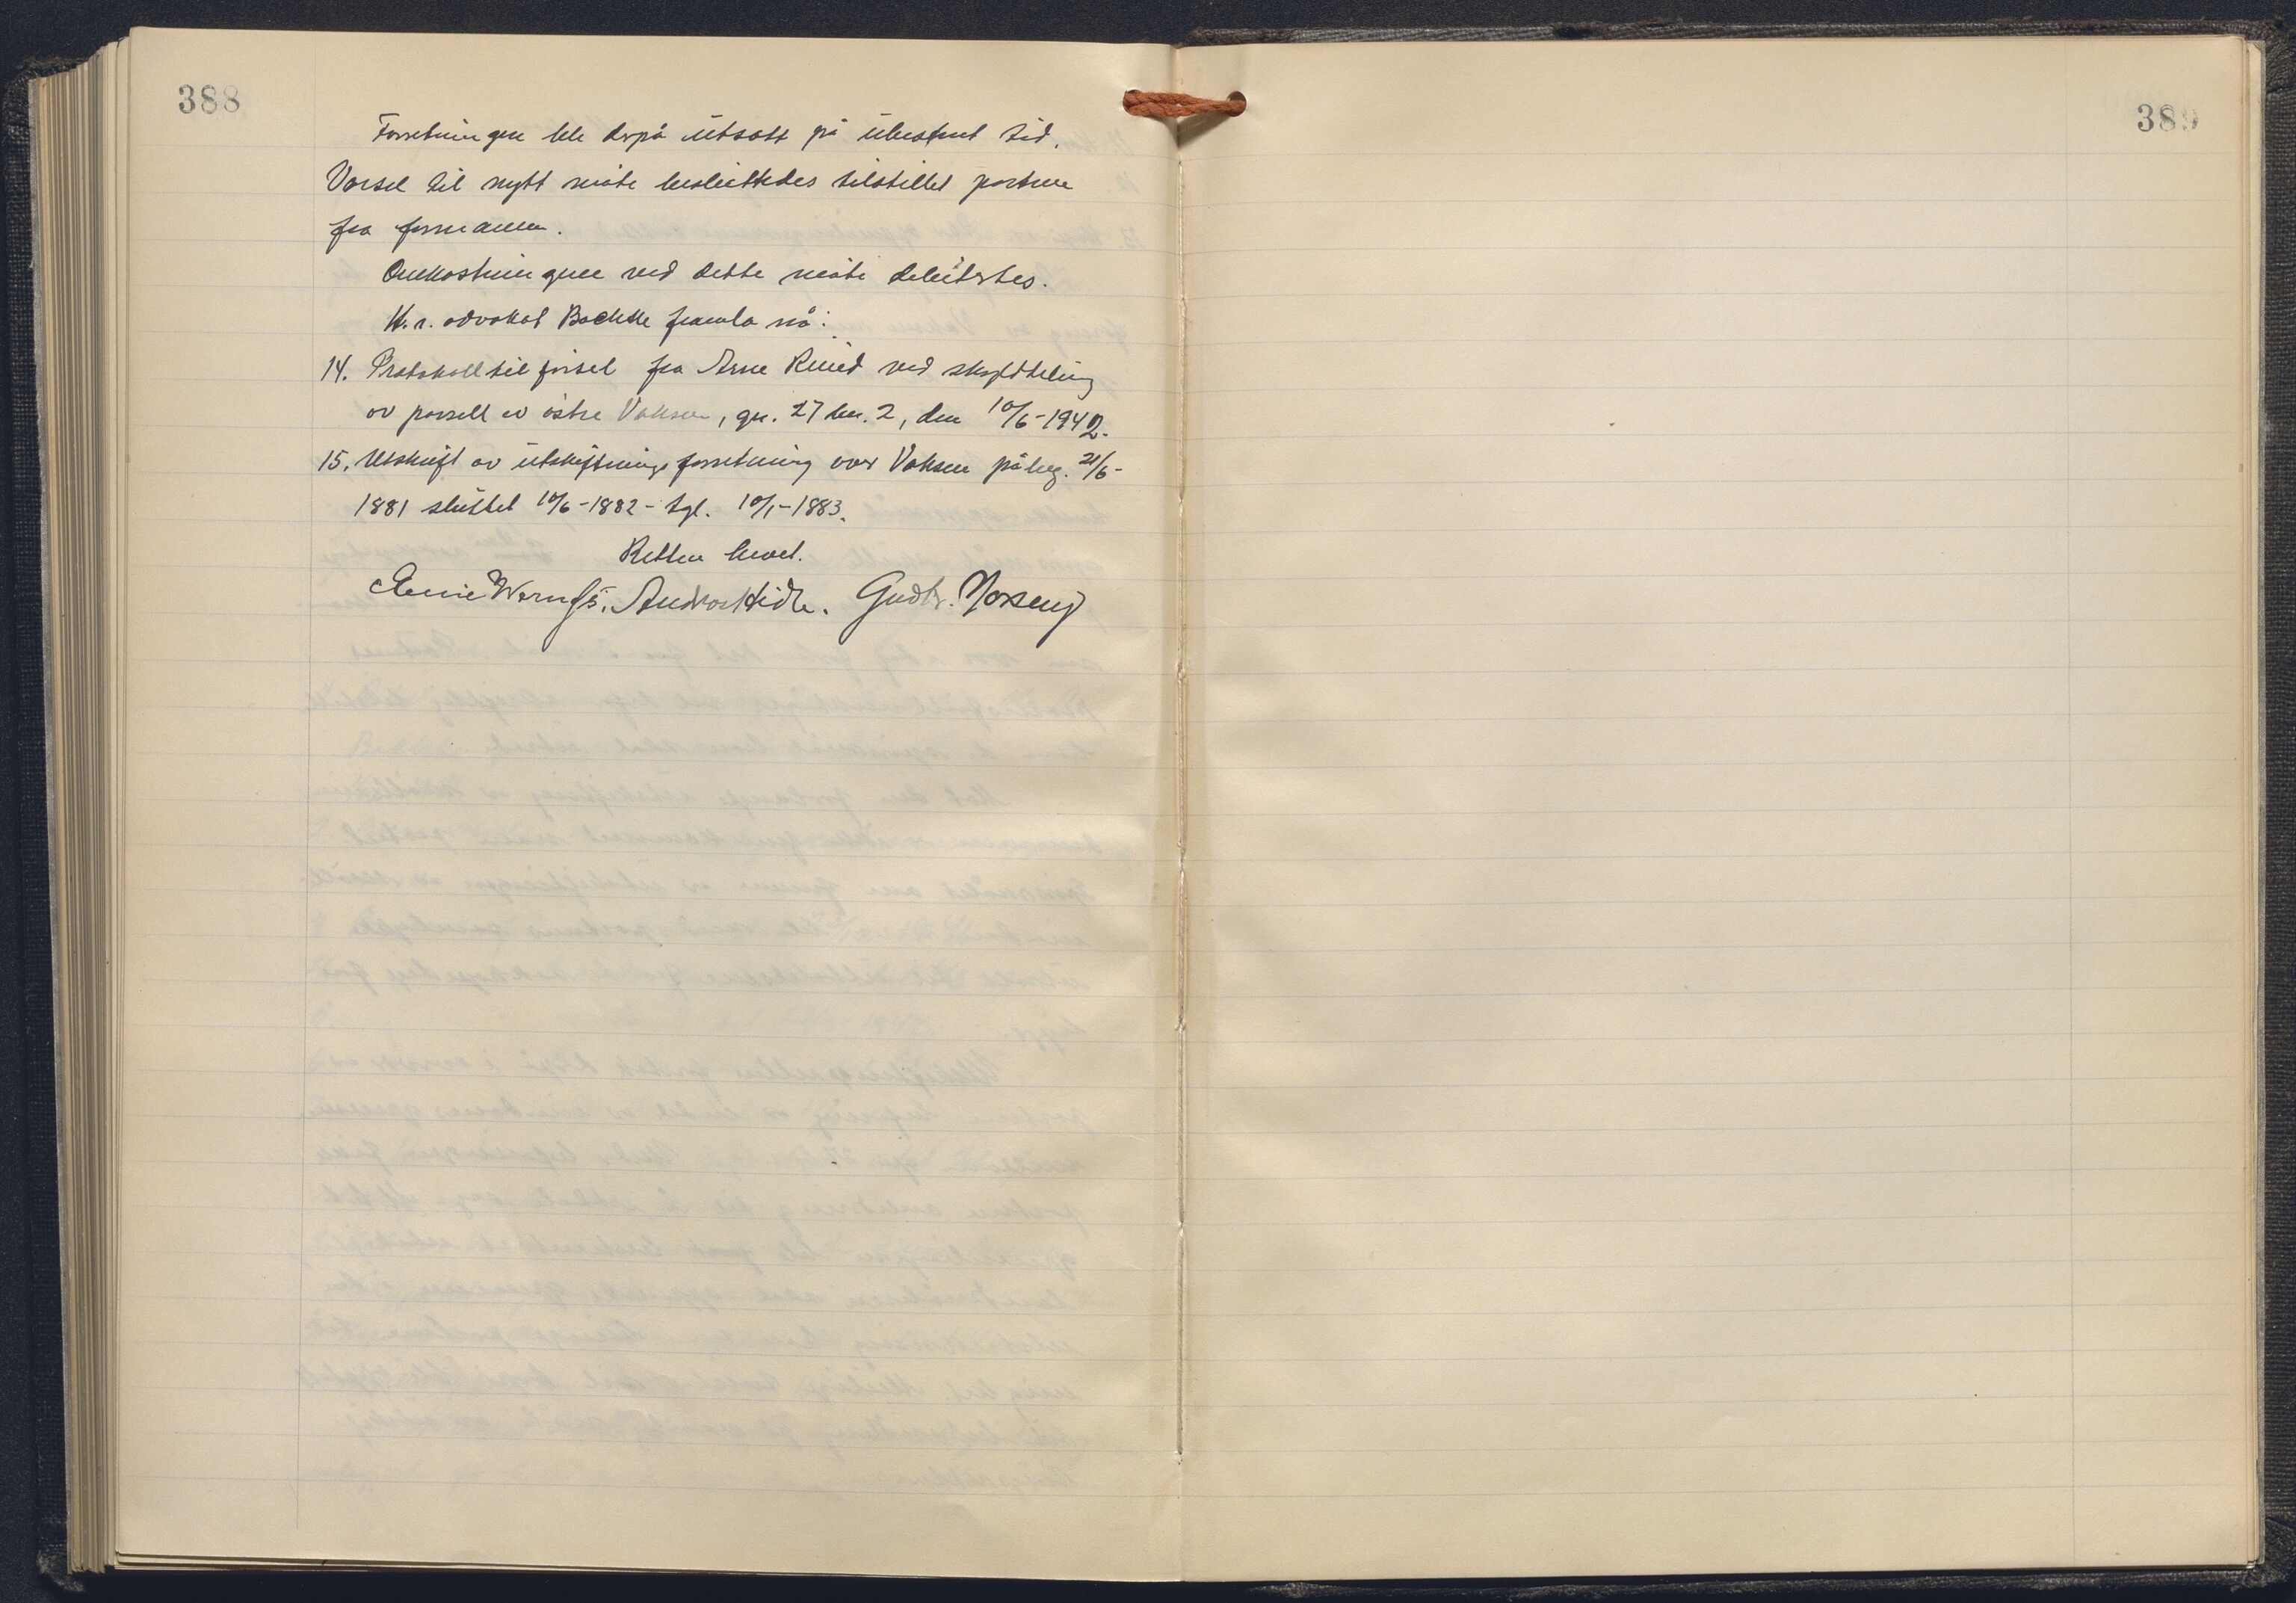 388
Forretningen ble derpå utsatt på ubestemt tid.
Varsel til nytt møte besluttedes tilstillet partene
fra formannen.
Omkostningene ved dette møte debitertes.
H.r. advokat Bachke framla nå:
14. Protokolltilførsel fra Arne Ruud ved skylddeling
av parsell av østre Voksen, gn. 27 bn. 2, den 10/6-1942.
15. Utskrift av utskiftningsforretning over Voksen påbeg. 21/6-
1881 sluttet 10/6-1882 - tgl. 10/1-1883.
Retten hevet.
Andr Gudbr.
389